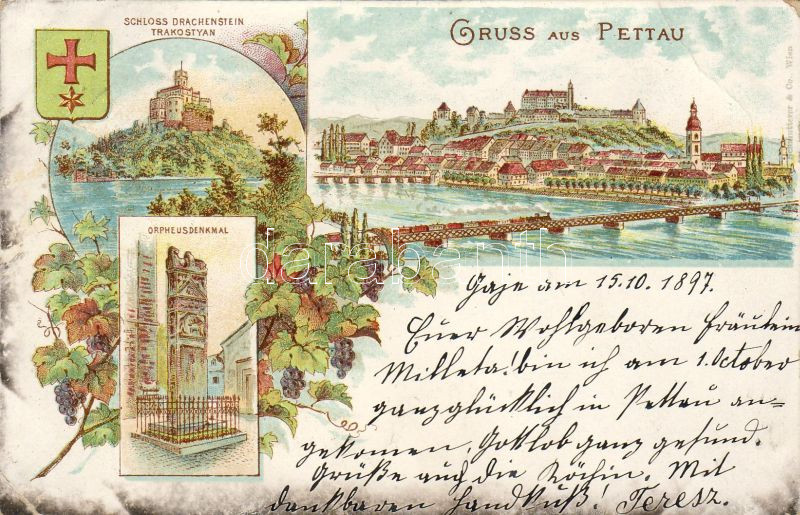 SCHLOSS DRACHENSTEIN
TRAKOSTYAN
GRUSS AUS PETTAU
ORPHEUSDENKMAL
& Co. Wien
darabanth
Gaje am 15.10.1897.
Euer Wohlgeboren Fräulein
Milleta! bin ich am 1. October
ganzglücklich in Pettau an=
gekomen, Gottlob ganz gesund.
Grüße auch die Köchin. Mit
dankbaren Handkuß! Teresz.